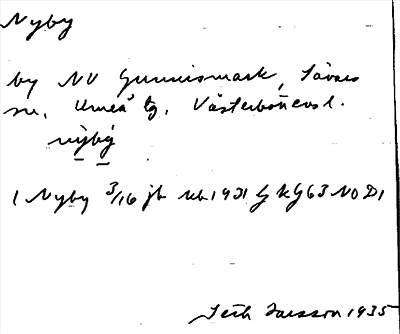 Nyby
by NV Gunnismark, Sävars
sn, Umeå tg, Västerbottens l.
nỳbý
1 Nyby 3/16 jb Kbl 1931 G KG 63 NO D1
Seth Larsson 1935